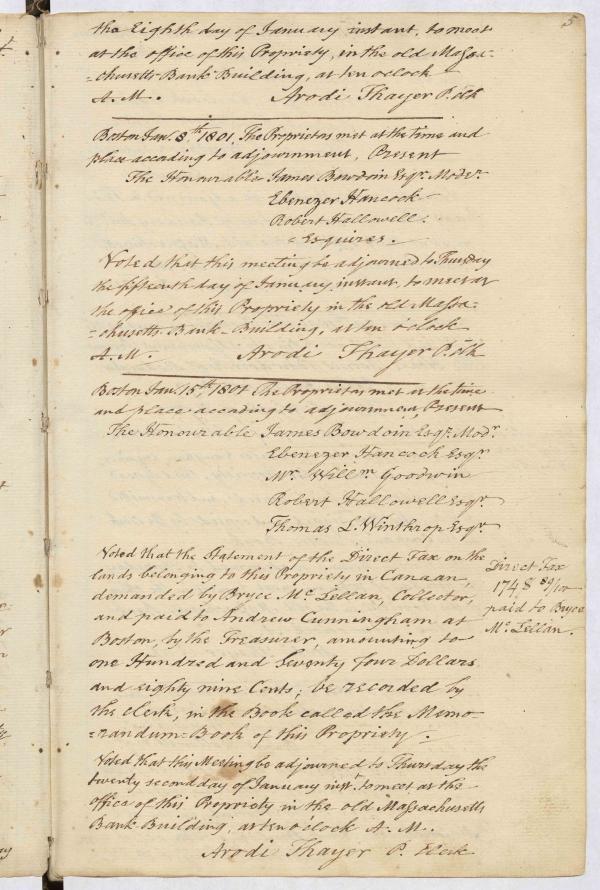 5
the Eighth day of January instant, to meet
at the office of this Propriety, in the old Massa-
=chusetts Bank Building, at ten oClock
A.M. Arodi Thayer P. Clk
Boston Jan. 8th 1801. The Proprietors met at the time and
place according to adjournment, Present
The Honourable James Bowdoin Esqr. Modr.
Ebenezer Hancock
Robert Hallowell.
= Esquires.
Voted that this meeting be adjourned to Thursday
the fifteenth day of January instant, to meet at
the office of this Propriety in the old Massa=
=chusetts Bank-Building, at ten o'clock
A.M. Arodi Thayer P. Clk
Boston Jan. 15th 1801 The Proprietors met at the time
and place according to adjournment, Present
The Honourable James Bowdoin Esqr. Modr.
Ebenezer Hancock Esqr.
Mr. Willm Goodwin
Robert Hallowell Esqr.
Thomas L. Winthrop Esqr.
Voted that the Statement of the Direct Tax on the
lands belonging to this Propriety in Canaan,
demanded by Bryce Mc. Lellan, Collector,
and paid to Andrew Cunningham at
Boston, by the Treasurer, amounting to
one Hundred and Seventy four Dollars
and eighty nine Cents; be recorded by
the clerk, in the Book called the Memo-
=randum=Book of this Propriety.
Direct Tax
174 $ 89/100
paid to Bryce
Mc. Lellan.
Voted that this Meeting be adjourned to Thursday the
twenty second day of January instt. to meet at the
office of this Propriety in the old Massachusetts
Bank Building, at ten o'clock A. M.
Arodi Thayer P. Clerk